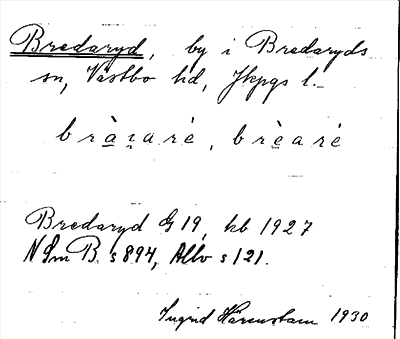 Bredaryd, by i Bredaryds
sn, Västbo hd, Jkpgs l.
bràı̣arė, brèarė
Bredaryd G 19, kb 1927
N Sm B. s 894, Allv s 121.
Ingrid Härenstam 1930